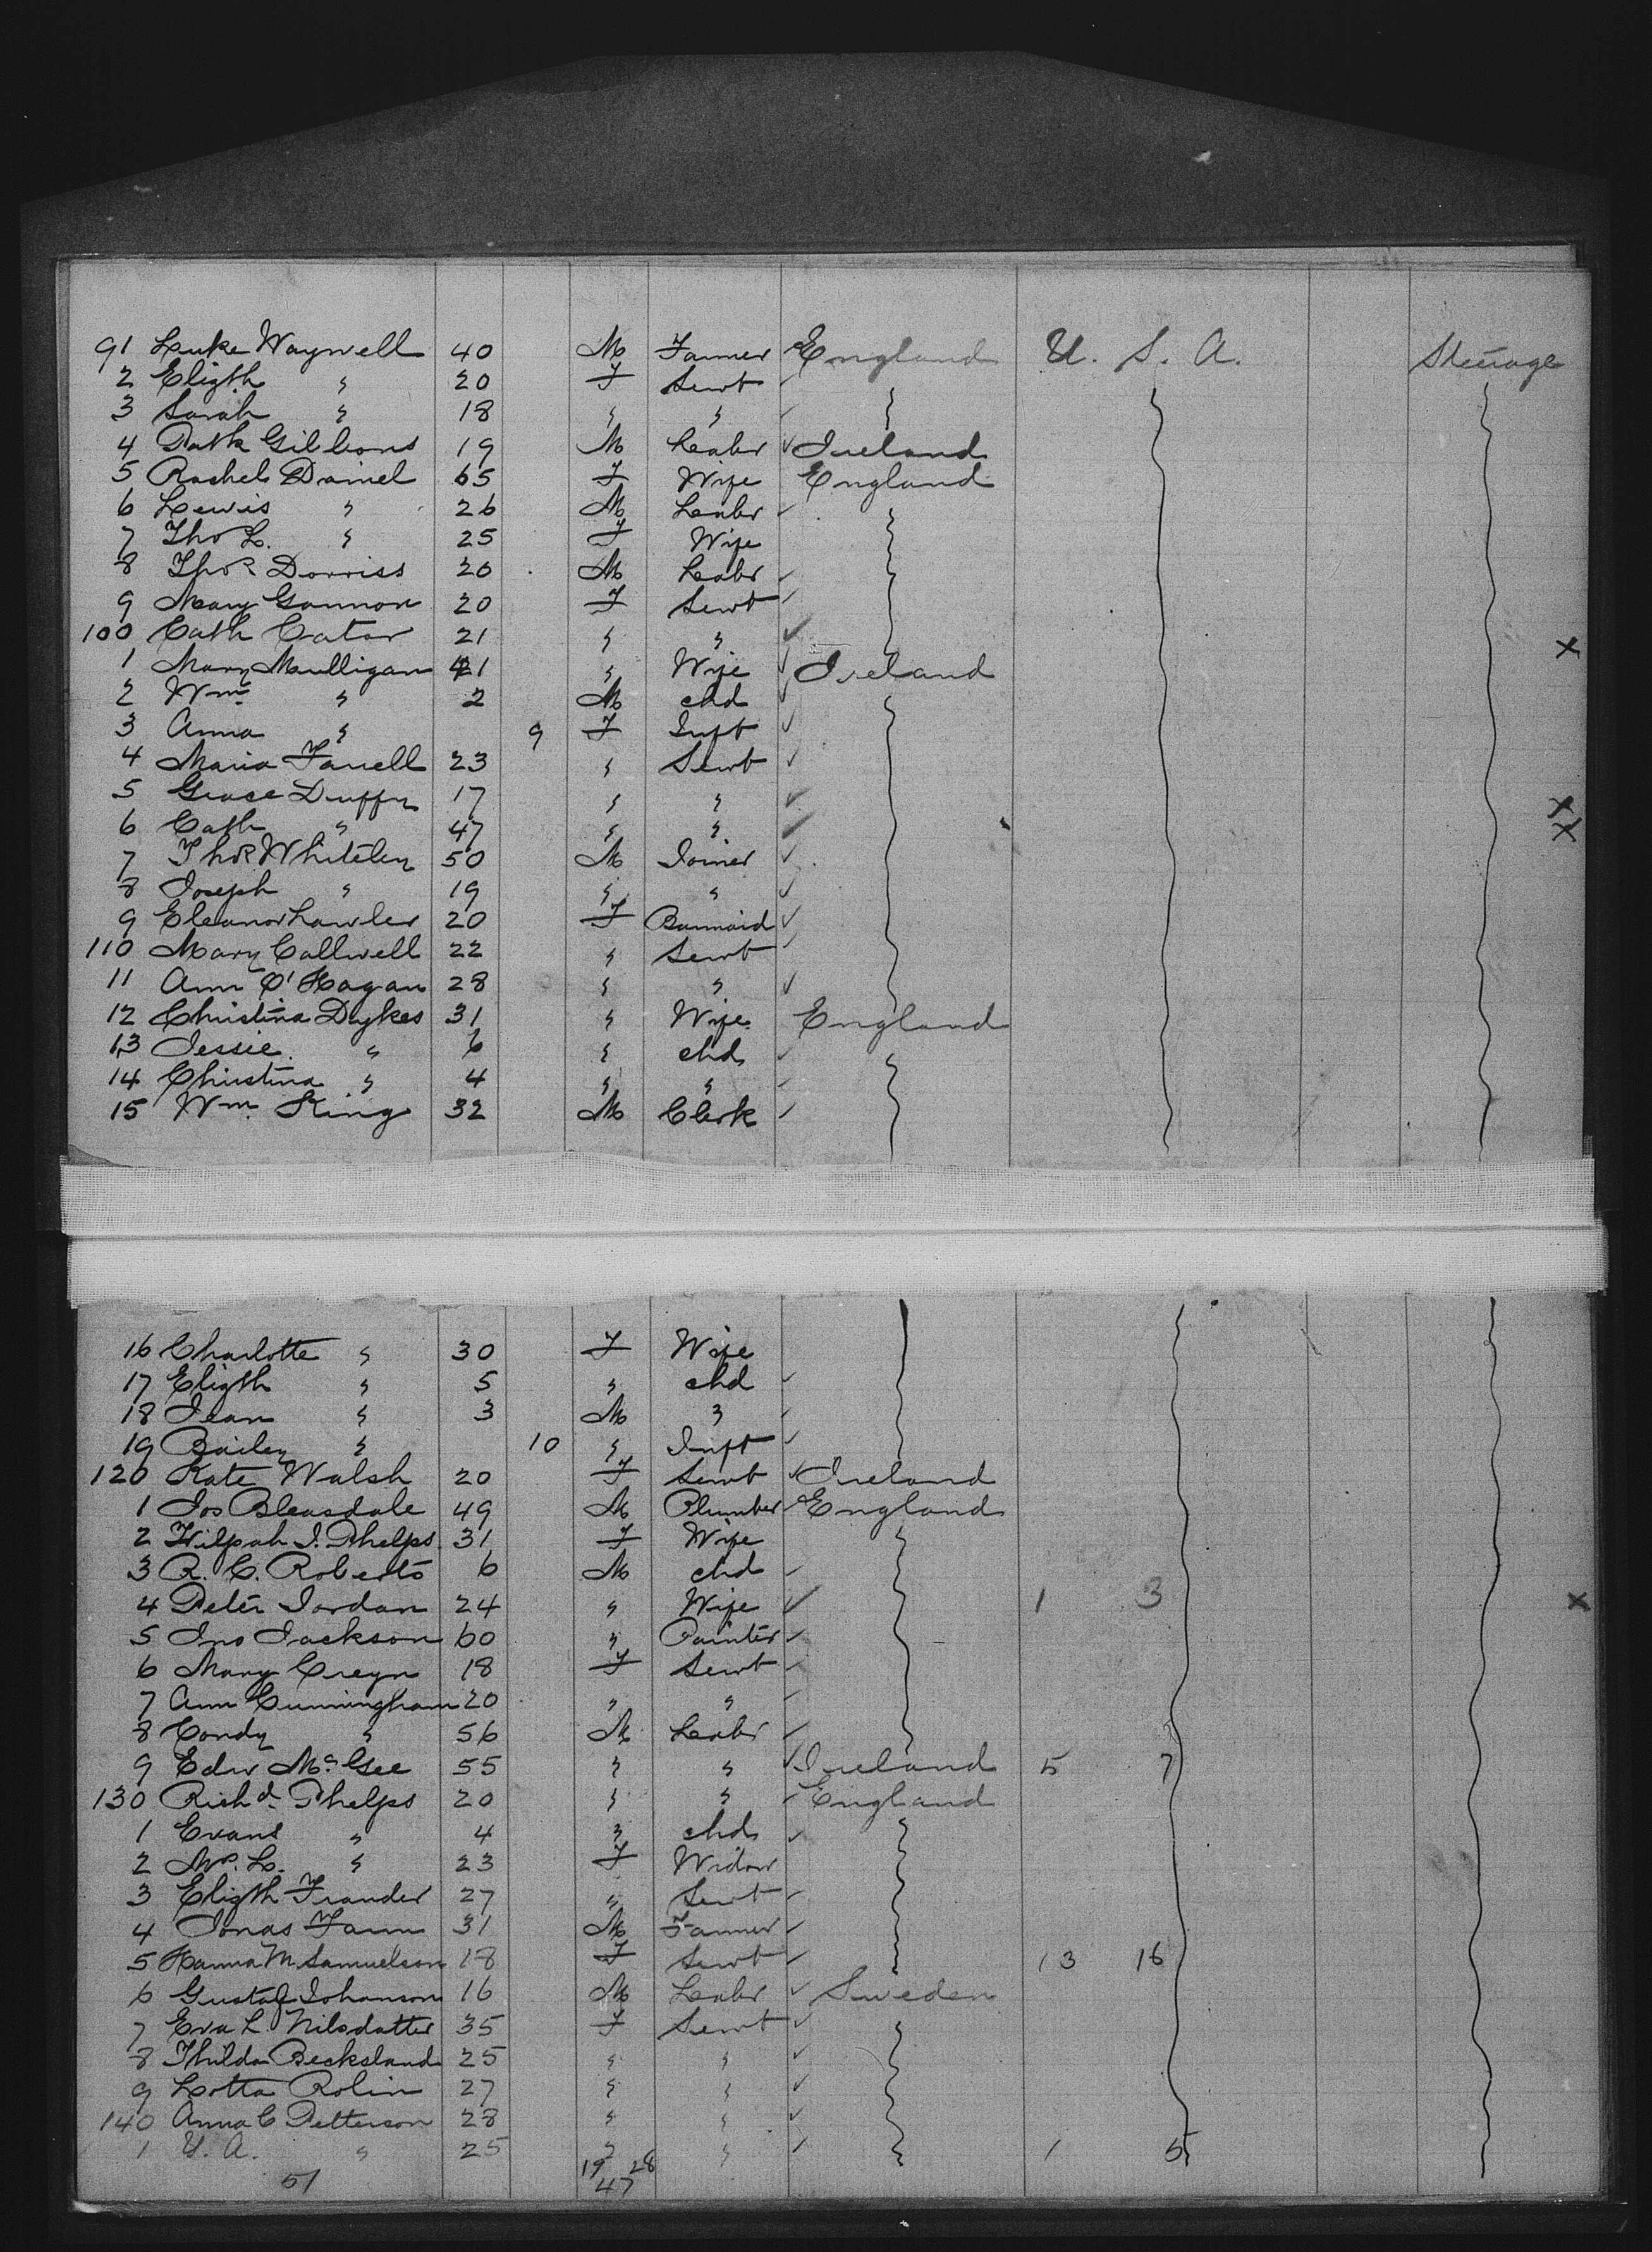 91 Luke Waywell 40 M Farmer England U. S. A. Steerage
2 Eligth " 20 F Servt
3 Sarah " 18 " "
4 Patk Gibbons 19 M Labr Ireland
5 Rachel Daniel 65 F Wife England
6 Lewis " 26 M Labr
7 Thos L. " 25 F Wife
8 Thos Dorriss 20 M Labr
9 Mary Gannon 20 F Servt
100 Cath Cator 21 " "
1 Mary Mulligan 21 " Wife Ireland
2 Wm " 2 M chd
3 Anna " 9 F Inft
4 Maria Farrell 23 " Servt
5 Grace Duffy 17 " "
6 Cath " 47 " "
7 Thos Whiteley 50 M Joiner
8 Joseph " 19 " "
9 Eleanor Lawler 20 F Barmaid
110 Mary Callwell 22 " Servt
11 Ann O'Hagan 28 " "
12 Christina Dykes 31 " Wife England
13 Jessie " 6 " chd
14 Christina " 4 " "
15 Wm. King 32 M Clerk
16 Charlotte " 30 F Wife
17 Eligth " 5 " chd
18 Jean " 3 M "
19 Bailey " 10 " Inft
120 Kate Walsh 20 F Servt Ireland
1 Jos Bleasdale 49 M Plumber England
2 J. Phelps 31 F Wife
3 R. C. Roberts 6 M chd
4 Peter Jordan 24 " Wife 1 3
5 Jno Jackson 60 " Painter
6 Mary Creyn 18 F Servt
7 Ann Cunningham 20 " "
8 Condy " 56 M Labr
9 Edw McGee 55 " " Ireland 5 7
130 Richd. Phelps 20 " " England
1 Evans " 4 " chd
2 Mrs. L. " 23 F Widow
3 Eligth Frander 27 " Servt
4 Jonas Fann 31 M Farmer
5 Hanna M Samuelson 18 F Servt 13 16
6 Gustaf Johanson 16 M Labr Sweden
7 Eva L. Nilsdatter 35 F Servt
8 Thilda Becksland 25 " "
9 Lotta Rolin 27 " "
140 Anna C Petterson 28 " "
1 U. A. " 25 " " 1 5
51 19 28
47